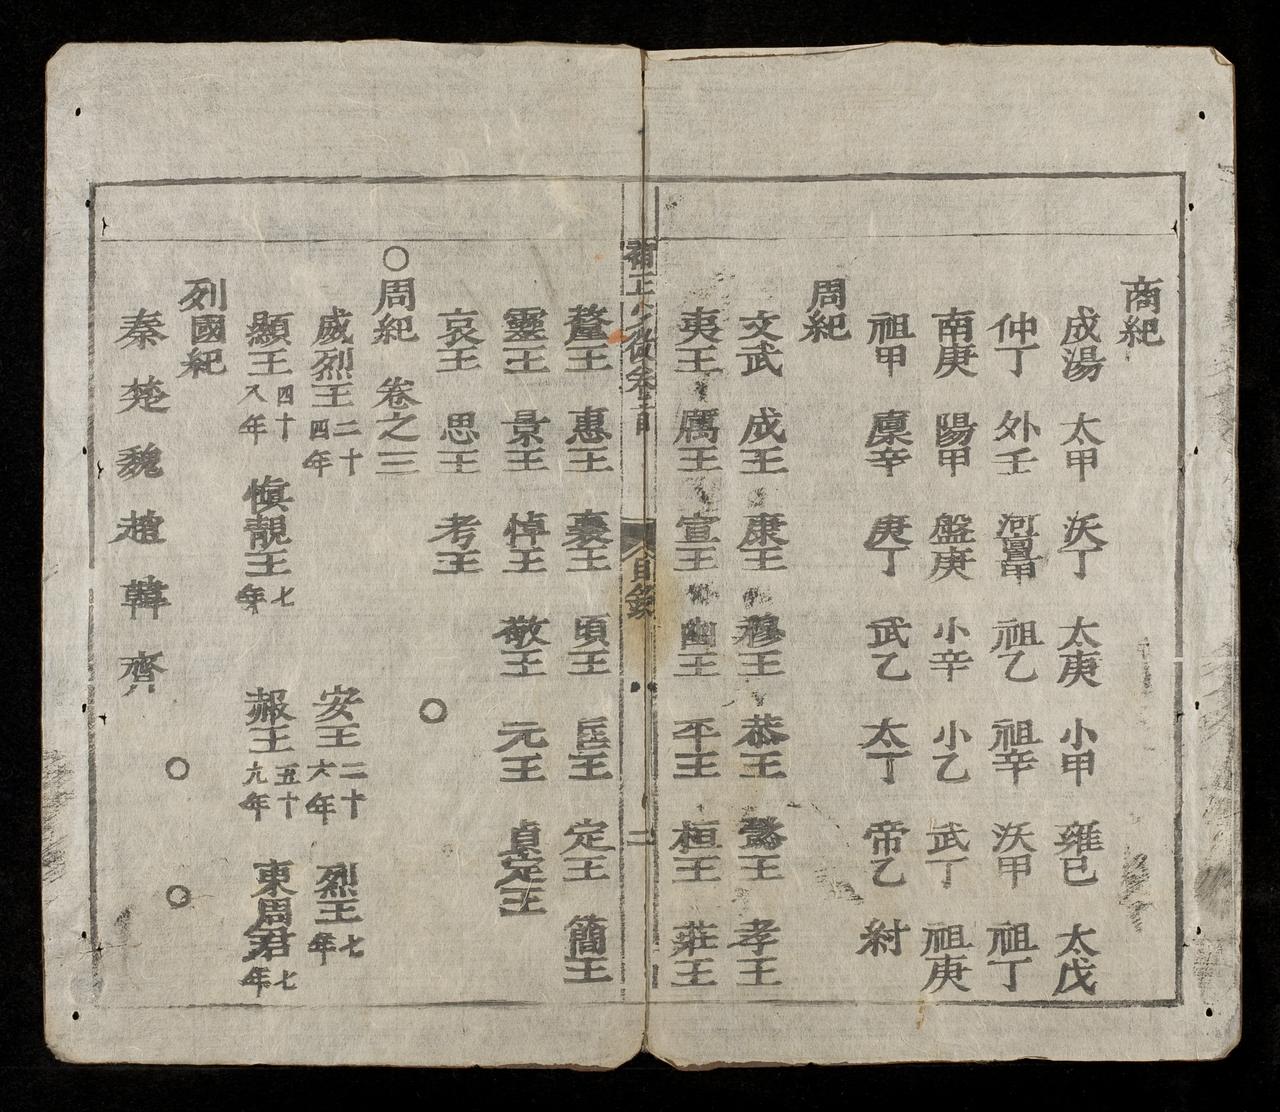 商紀
成湯 太甲 沃丁 太庚 小甲 雍已 太戊
仲丁 外壬 河亶甲 祖乙 祖辛 沃甲 祖丁
南庚 陽甲 盤庚 小辛 小乙 武丁 祖庚
祖甲 廩辛 庚丁 武乙 太丁 帝乙 紂
周紀
文武 成王 康王 穆王 恭王 懿王 孝王
夷王 厲王 宣王 幽王 平王 桓王 莊王
目錄 二
釐王 惠王 襄王 頃王 匡王 定王 簡王
靈王 景王 悼王 敬王 元王 貞定王
哀王 思王 考王 ○
○周紀 卷之三
威烈王二十四年 安王二十六年 烈王七年
顯王四十八年 愼靚王七年 赧王五十九年 東周君七年
列國紀
秦 楚 魏 趙 韓 齊